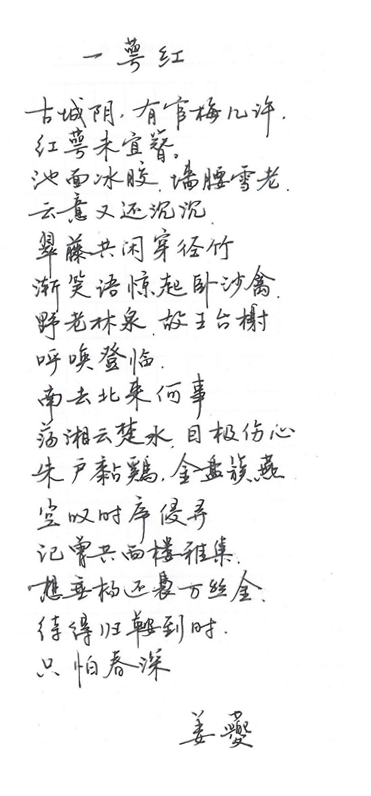 一萼红
古城阴,有官梅几许,
红萼未宜簪。
池面冰胶,墙腰雪老,
云意又还沉沉
翠藤共闲穿径竹
渐笑语惊起卧沙禽,
野老林泉,故王台榭
呼唤登临,
南去北来何事
荡湘云楚水,目极伤心
朱户黏鸡,金盘簇燕
空叹时序侵寻
记曾共西楼雅集,
想垂杨还袅万丝金,
待得归鞍到时,
只怕春深
姜夔